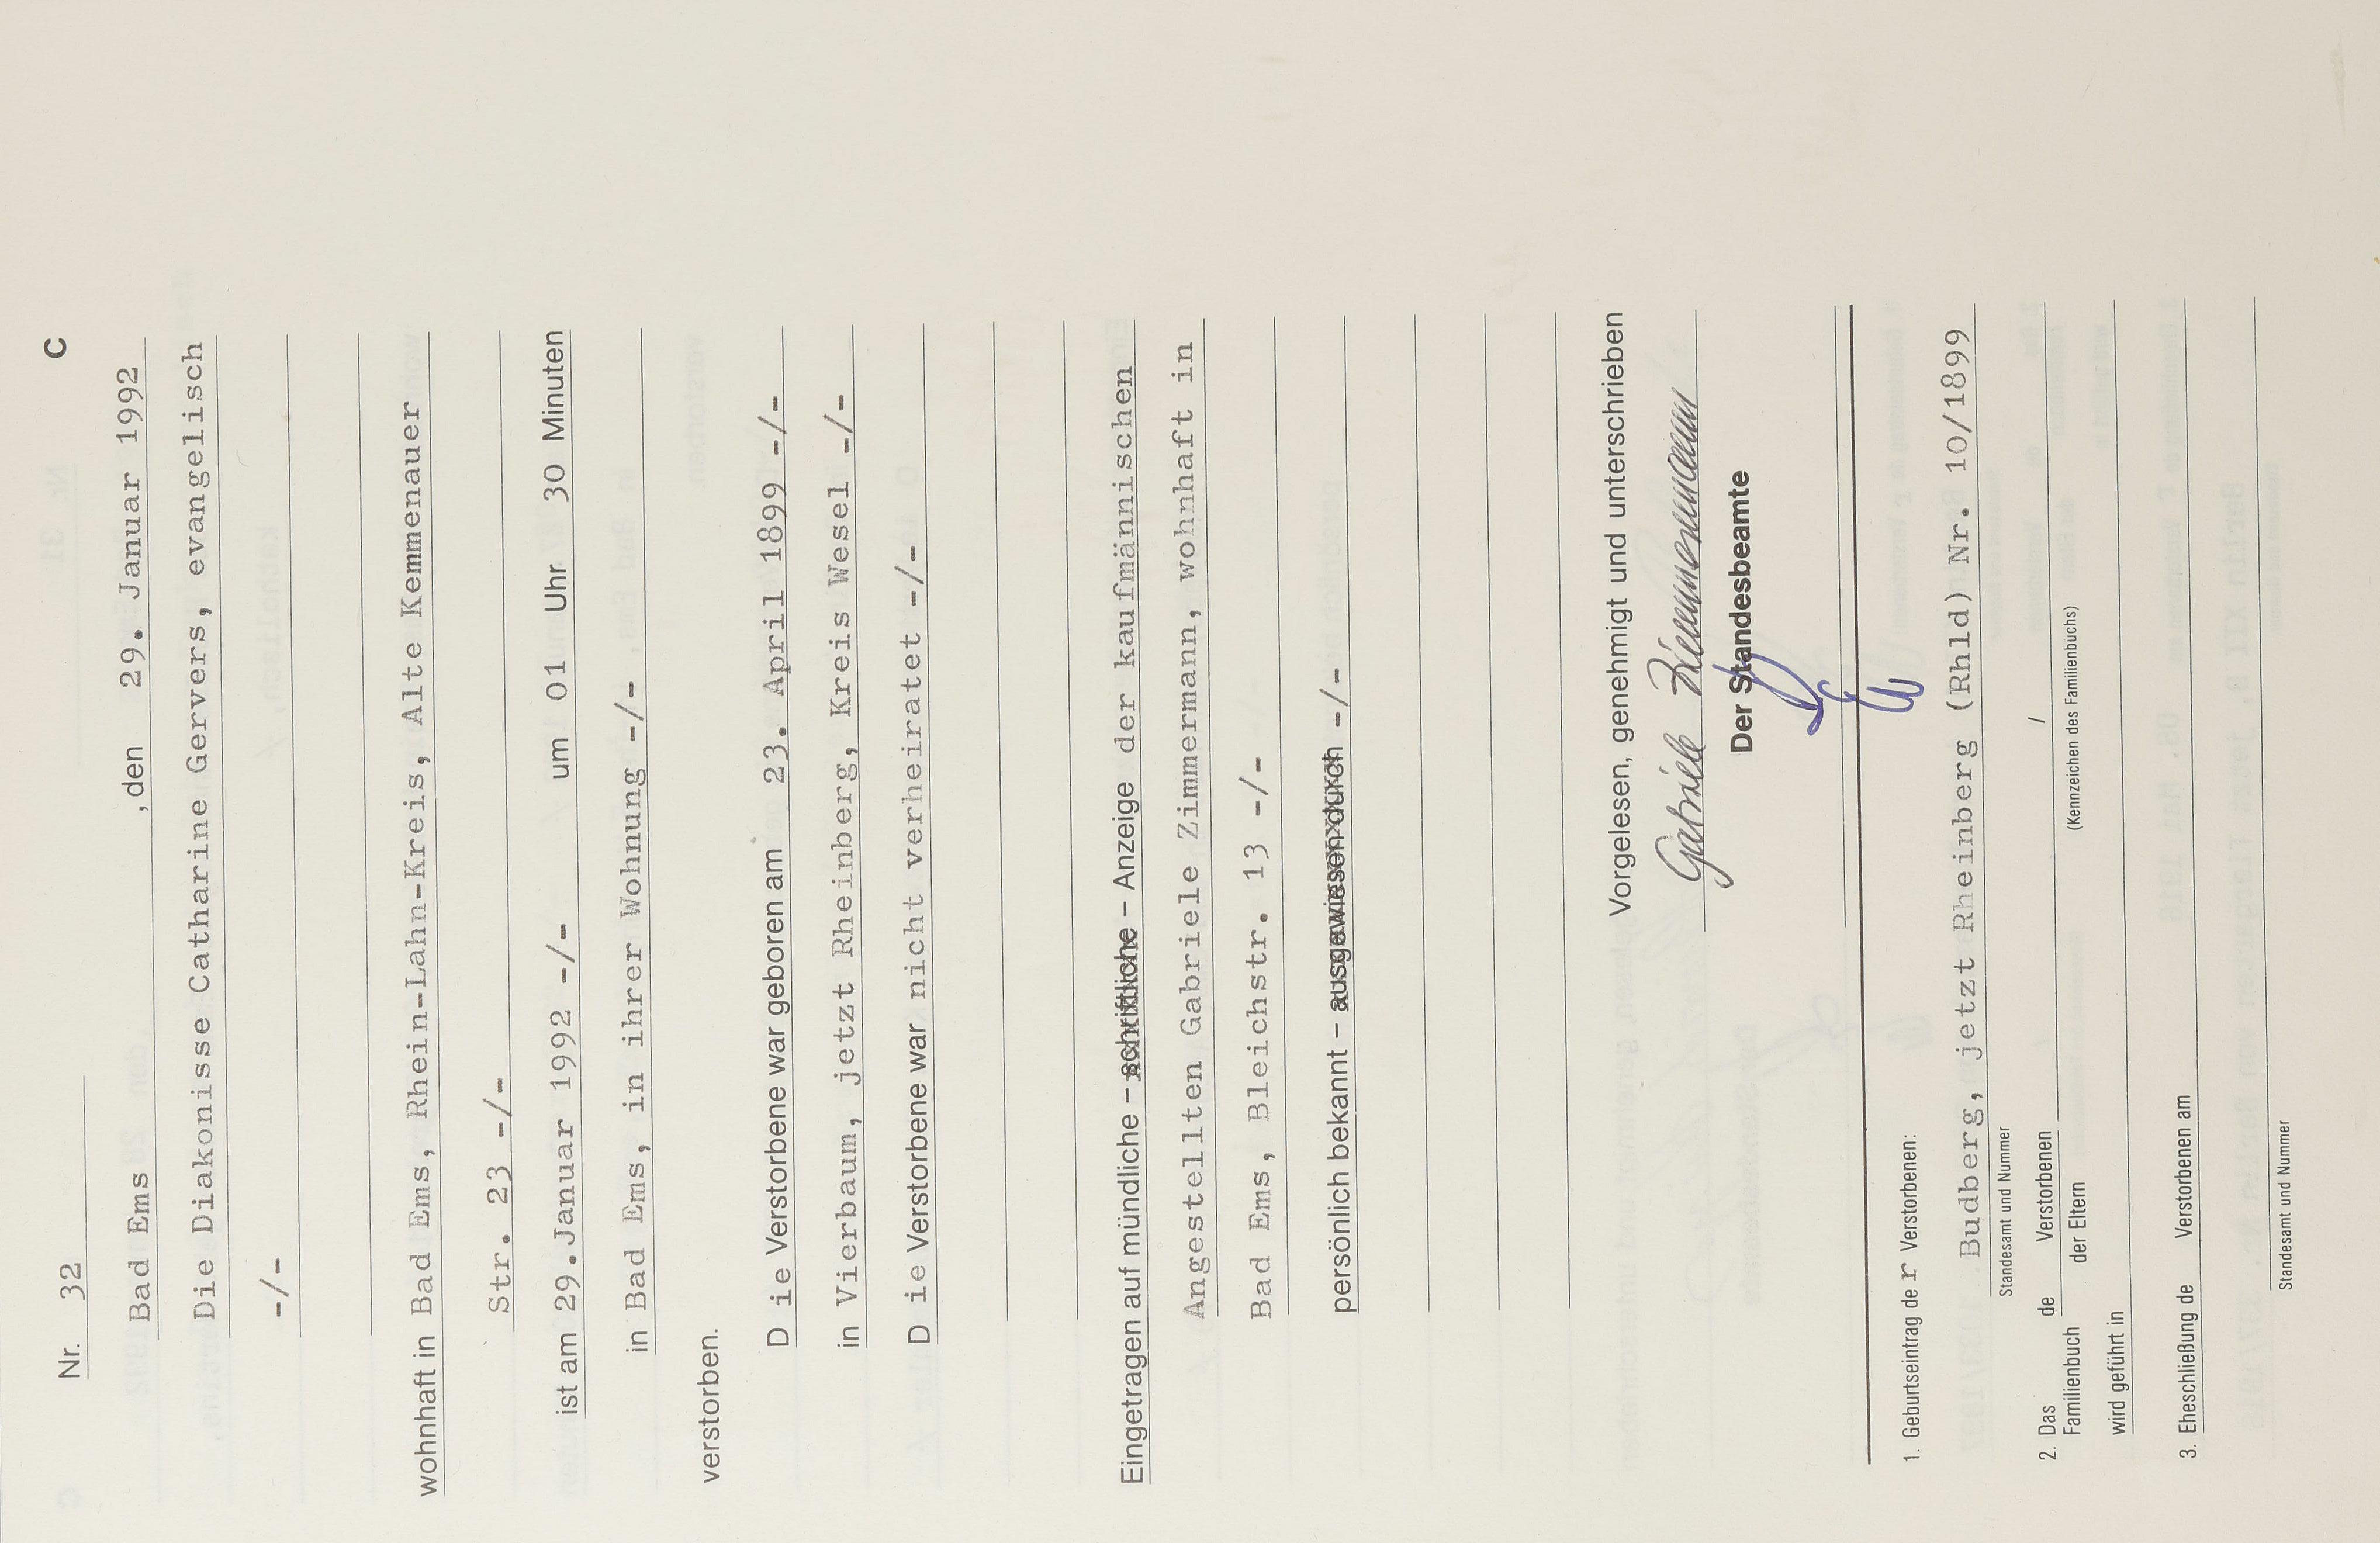 C
Nr. 32
Bad Ems , den 29. Januar 1992
Die Diakonisse Catharine Gervers, evangelisch
-/-
wohnhaft in Bad Ems, Rhein-Lahn-Kreis, Alte Kemmenauer
Str. 23 -/-
ist am 29.Januar 1992 -/- um 01 Uhr 30 Minuten
in Bad Ems, in ihrer Wohnung -/-
verstorben.
D ie Verstorbene war geboren am 23. April 1899 -/-
in Vierbaum, jetzt Rheinberg, Kreis Wesel -/-
D ie Verstorbene war nicht verheiratet -/-
Eingetragen auf mündliche – schriftliche – Anzeige der kaufmännischen
Angestellten Gabriele Zimmermann, wohnhaft in
Bad Ems, Bleichstr. 13 -/-
persönlich bekannt – ausgewiesen durch -/-
Vorgelesen, genehmigt und unterschrieben
Gabriele Zimmermann
Der Standesbeamte
1. Geburtseintrag de r Verstorbenen:
Budberg, jetzt Rheinberg (Rhld) Nr. 10/1899
Standesamt und Nummer
2. Das de Verstorbenen /
Familienbuch der Eltern (Kennzeichen des Familienbuchs)
wird geführt in
3. Eheschließung de Verstorbenen am
Standesamt und Nummer